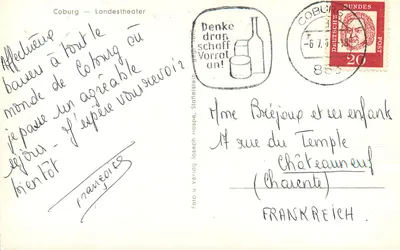 Coburg — Landestheater
Affectueux
baisers à tout le
monde de Coburg où
je passe un agréable
séjour. J'espère vous revoir
bientôt
Françoise
Foto u Verlag Joseph Haspe, Staffelstein
Denke
dran
schaff
Vorrat
an!
COBURG
-6.7.
863
DEUTSCHE BUNDESPOST
20
Mme Bréjoux et ses enfants
17 rue du Temple
Châteauneuf
(Charente)
FRANKREICH.